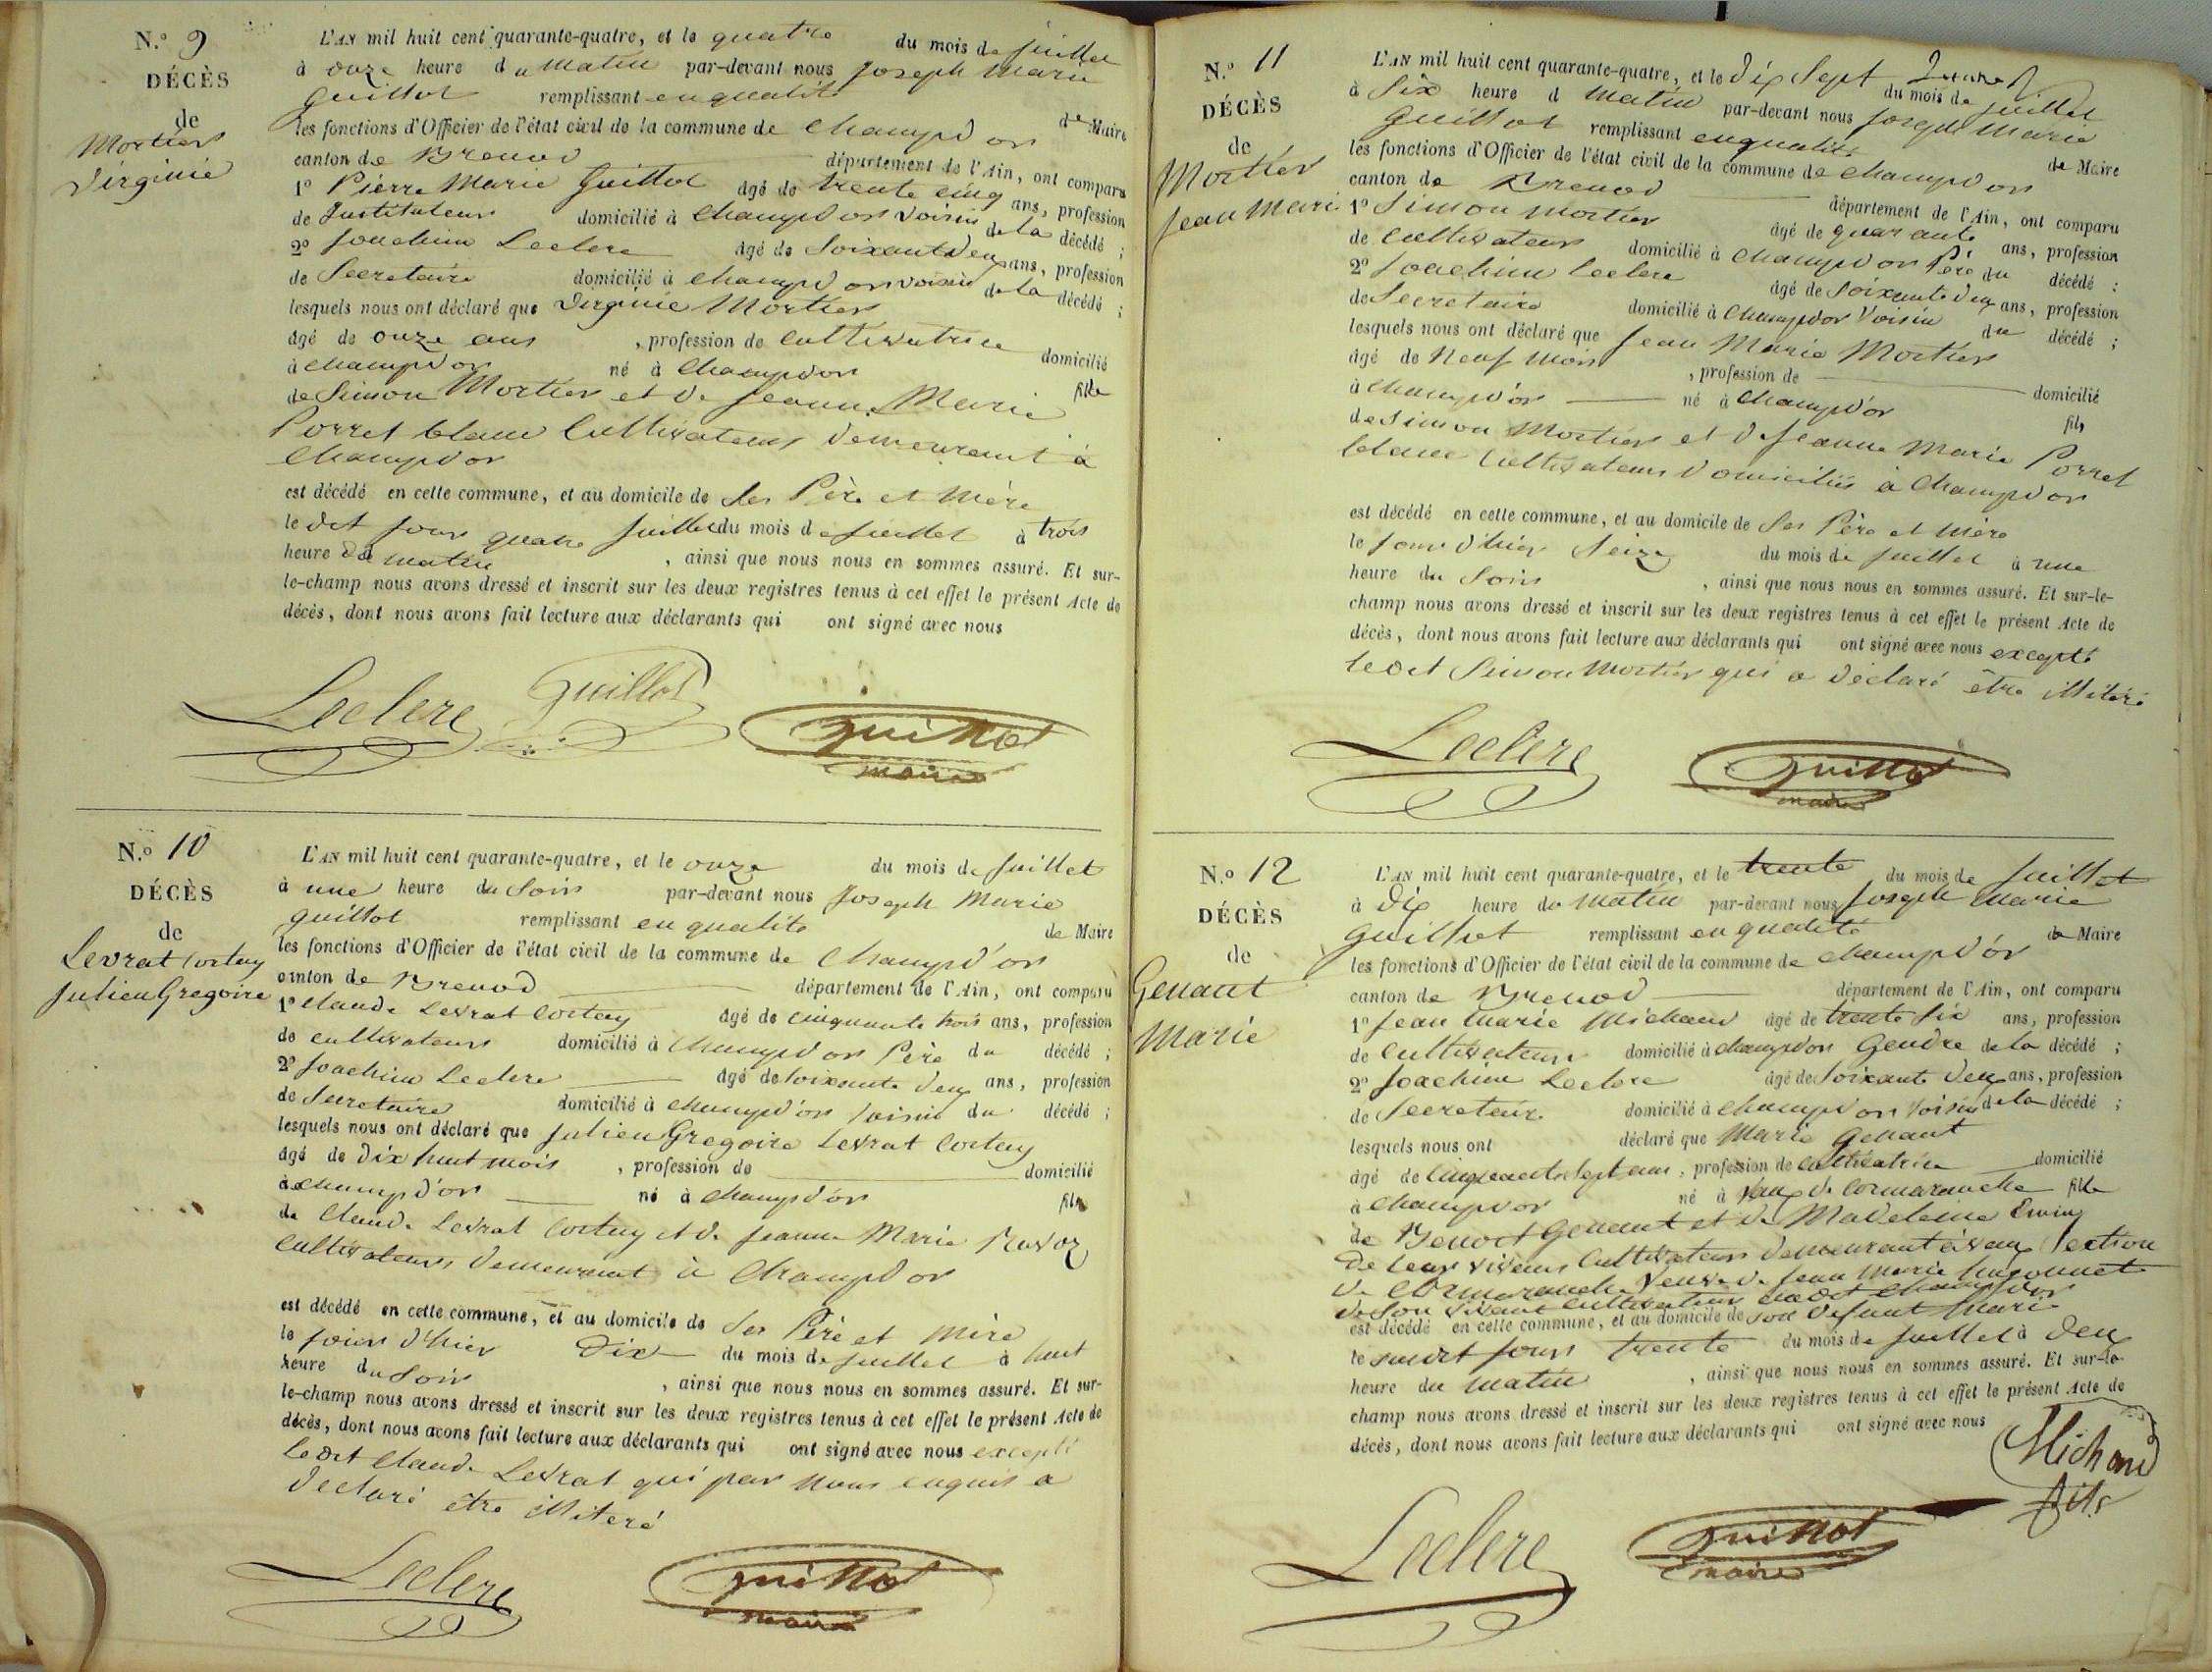 N.º 9
DÉCÈS
de
Mortier
Virginie
L'AN mil huit cent quarante-quatre, et le quatre du mois de juillet
à onze heure du matin par-devant nous Joseph Marie
Guillot remplissant en qualité de Maire
les fonctions d'Officier de l'état civil de la commune de Champd'or
canton de Brenod département de l'Ain, ont comparu
1º Pierre Marie Guillot âgé de trente cinq ans, profession
de Instituteur domicilié à Champd'or voisin de la décédé ;
2º Joachim Leclerc âgé de Soixante deux ans, profession
de Secretaire domicilié à Champd'or voisin de la décédé ;
lesquels nous ont déclaré que Virginie Mortier
âgé de onze ans , profession de cultivatrice domicilié
à Champd'or né à Champd'or fille
de Simon Mortier et de Jeanne Marie
Porret blanc Cultivateurs demeurant à
Champd'or
est décédé en cette commune, et au domicile de Ses Père et Mère
le dit jour quatre juillet du mois de juillet à trois
heure du matin , ainsi que nous nous en sommes assuré. Et sur-
le-champ nous avons dressé et inscrit sur les deux registres tenus à cet effet le présent Acte de
décès, dont nous avons fait lecture aux déclarants qui ont signé avec nous
Leclerc Guillot Guillot
maire
N.º 10
DÉCÈS
de
Levrat Cortey
Julien Gregoire
L'AN mil huit cent quarante-quatre, et le onze du mois de juillet
à une heure du Soir par-devant nous Joseph Marie
Guillot remplissant en qualité de Maire
les fonctions d'Officier de l'état civil de la commune de Champd'or
canton de Brenod département de l'Ain, ont comparu
1º Claude Levrat Cortey âgé de cinquante trois ans, profession
de cultivateur domicilié à Champd'or Père du décédé ;
2º Joachim Leclerc âgé de soixante deux ans, profession
de Secretaire domicilié à Champd'or voisin du décédé ;
lesquels nous ont déclaré que Julien Gregoire Levrat Cortey
âgé de Dix huit mois , profession de domicilié
à Champd'or né à Champd'or fils
de Claude Levrat Cortey et de Jeanne Marie
Cultivateurs demeurant à Champd'or
est décédé en cette commune, et au domicile de Ses Père et Mère
le jour d'hier Dix du mois de juillet à huit
heure du Soir , ainsi que nous nous en sommes assuré. Et sur-
le-champ nous avons dressé et inscrit sur les deux registres tenus à cet effet le présent Acte de
décès, dont nous avons fait lecture aux déclarants qui ont signé avec nous excepté
le dit Claude Levrat qui par nous enquis a
declaré être illiteré
Leclerc Guillot
maire
N.º 11
DÉCÈS
de
Mortier
Jean Marie
L'AN mil huit cent quarante-quatre, et le Dix Sept du mois de juillet
à Six heure d matin par-devant nous Joseph Marie
Guillot remplissant en qualité de Maire
les fonctions d'Officier de l'état civil de la commune de Champd'or
canton de Brenod département de l'Ain, ont comparu
1º Simon Mortier âgé de quarante ans, profession
de Cultivateur domicilié à Champd'or Père du décédé ;
2º Joachim Leclerc âgé de soixante deux ans, profession
de Secretaire domicilié à Champd'or Voisin du décédé ;
lesquels nous ont déclaré que Jean Marie Mortier
âgé de Neuf Mois , profession de domicilié
à Champd'or né à Champd'or fils
de Simon Mortier et de Jeanne Marie Porret
blanc Cultivateurs Domiciliés à Champd'or
est décédé en cette commune, et au domicile de Ses Père et Mère
le jour d'hier Seize du mois de juillet à une
heure du Soir , ainsi que nous nous en sommes assuré. Et sur-le-
champ nous avons dressé et inscrit sur les deux registres tenus à cet effet le présent Acte de
décès, dont nous avons fait lecture aux déclarants qui ont signé avec nous excepté
le dit Simon Mortier qui a déclaré être illiteré
Leclerc Guillot
maire
N.º 12
DÉCÈS
de
Genant
Marie
L'AN mil huit cent quarante-quatre, et le trente du mois de Juillet
à Dix heure du matin par-devant nous Joseph Marie
Guillot remplissant en qualité de Maire
les fonctions d'Officier de l'état civil de la commune de Champd'or
canton de Brenod département de l'Ain, ont comparu
1º Jean Marie Michaud âgé de trente Six ans, profession
de Cultivateur domicilié à Champd'or Gendre de la décédé ;
2º Joachim Leclerc âgé de Soixante Deux ans, profession
de Secretaire domicilié à Champd'or voisin de la décédé ;
lesquels nous ont déclaré que Marie Genant
âgé de Cinquante Sept ans , profession de cultivatrice domicilié
à Champd'or né à Vaux de Cormaranche fille
de Benoit Genant et de Madeleine
De leurs vivans Cultivateurs demeurant à vaux Section
de Cormaranche Veuve de Jean Marie
de Son vivant Cultivateur au dit Champd'or
est décédé en cette commune, et au domicile de son defunt Mari
le susdit jour trente du mois de juillet à Deux
heure du matin , ainsi que nous nous en sommes assuré. Et sur-le-
champ nous avons dressé et inscrit sur les deux registres tenus à cet effet le présent Acte de
décès, dont nous avons fait lecture aux déclarants qui ont signé avec nous
Michaud
fils
Leclerc Guillot
maire